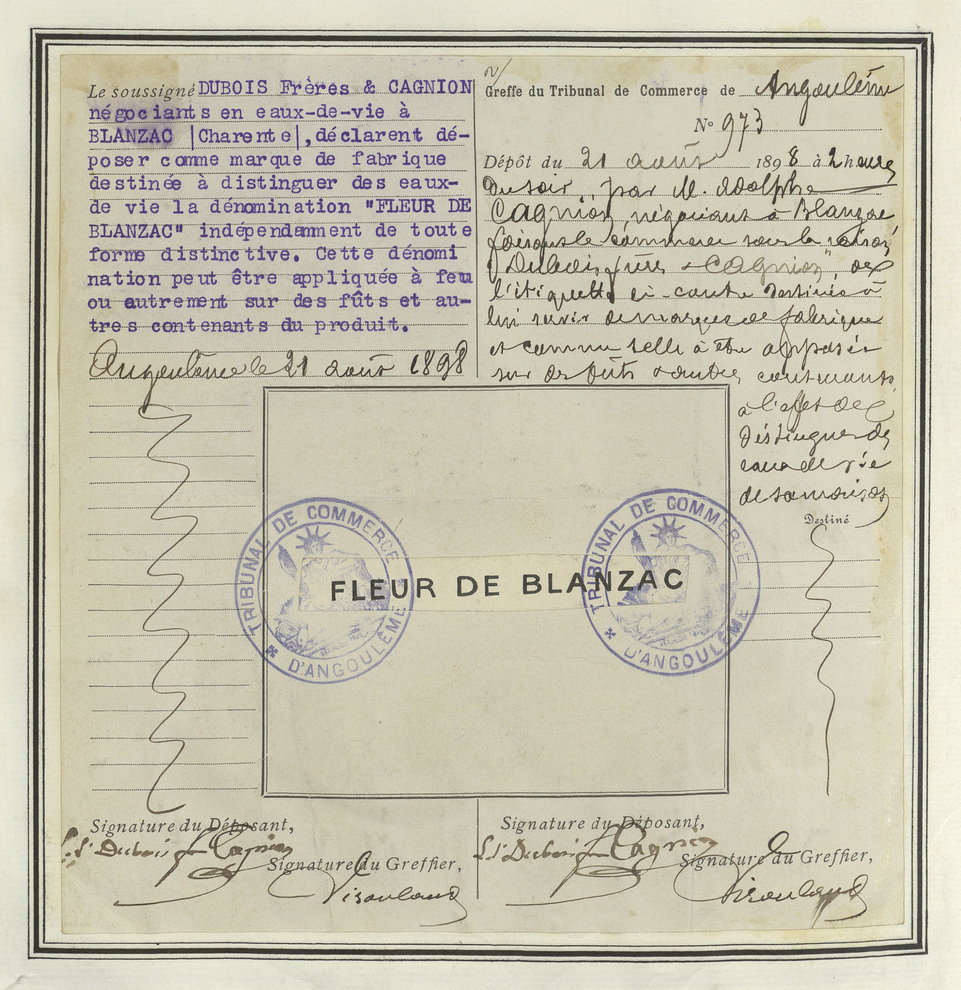 Le soussigné DUBOIS Frères & CAGNION
négociants en eaux-de-vie à
BLANZAC |Charente|, déclarent dé-
poser comme marque de fabrique
destinée à distinguer des eaux-
de vie la dénomination "FLEUR DE
BLANZAC" indépendamment de toute
forme distinctive. Cette dénomi
nation peut être appliquée à feu
ou autrement sur des fûts et au-
tres contenants du produit.
Angoulême le 21 août 1898
Greffe du Tribunal de Commerce de Angoulême
N° 973
Dépôt du 21 août 1898 à 2 heures
du soir, par M. Adolphe
Cagnion, négociant à Blanzac
faisant le commerce sous la raison
"Dubois frères & Cagnion", de
l'étiquette ci-contre destinée à
lui servir de marque de fabrique
et comme telle à être apposée
sur des fûts & autres contenants
à l'effet de
distinguer des
eaux de vie
de sa maison
Destiné
TRIBUNAL DE COMMERCE
D'ANGOULÊME
FLEUR DE BLANZAC
TRIBUNAL DE COMMERCE
D'ANGOULÊME
Signature du Déposant,
Dubois frs Cagnion
Signature du Greffier,
Signature du Déposant,
Dubois frs Cagnion
Signature du Greffier,